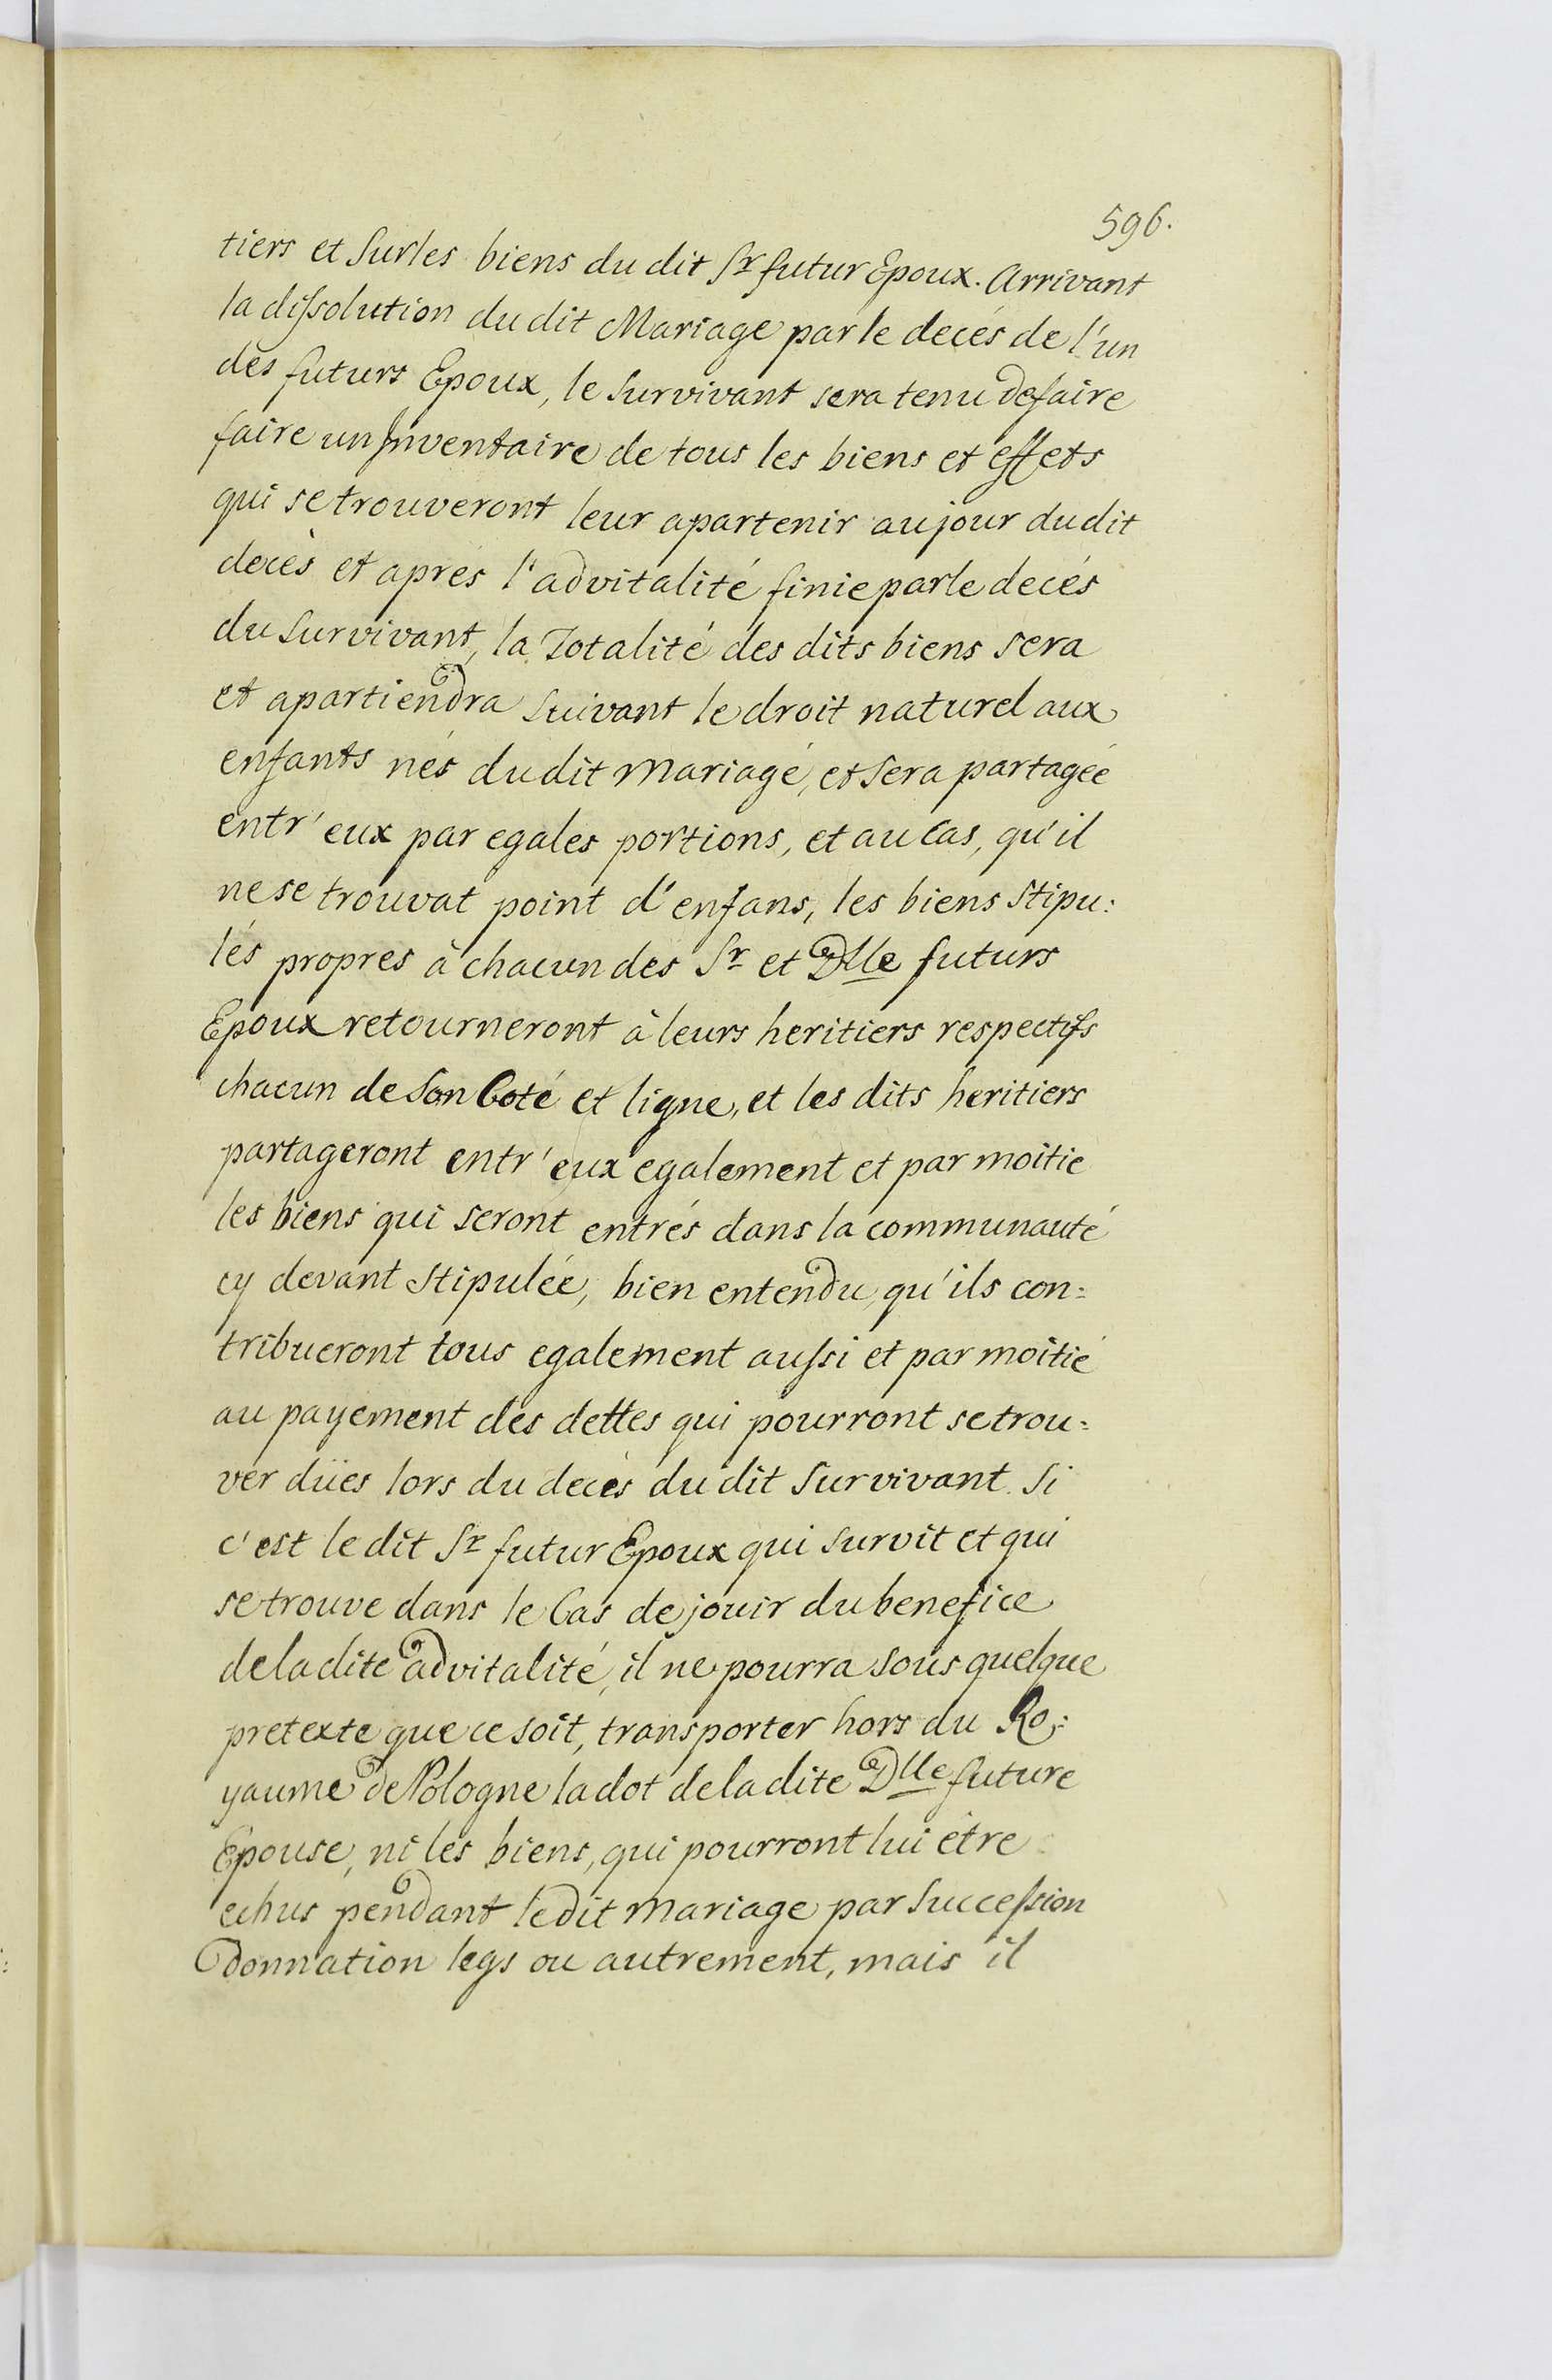 596.
tiers et sur les biens du dit Sr futur Epoux. Arrivant
la dissolution du dit Mariage par le decés de l'un
des futurs Epoux, le survivant sera tenu de faire
faire un Inventaire de tous les biens et effets
qui se trouveront leur apartenir au jour du dit
decès et aprés l'advitalité finie par le decés
du survivant, la Totalité des dits biens sera
et apartiendra suivant le droit naturel aux
enfants nés du dit Mariage, et sera partagée
entr'eux par egales portions, et au cas, qu'il
ne se trouvat point d'enfans, les biens stipu:
lés propres à chacun des Sr et Dlle futurs
Epoux retourneront à leurs heritiers respectifs
chacun de son Coté et ligne, et les dits heritiers
partageront entr'eux egalement et par moitié
les biens qui seront entrés dans la communauté
cy devant stipulée, bien entendu, qu'ils con:
tribueront tous egalement aussi et par moitié
au payement des dettes qui pourront se trou:
ver dües lors du decès du dit survivant. Si
c'est le dit Sr futur Epoux qui survit et qui
se trouve dans le Cas de jouir du benefice
de la dite advitalité, il ne pourra sous quelque
pretexte que ce soit, transporter hors du Ro:
yaume de Pologne la dot de la dite Dlle future
Epouse, ni les biens, qui pourront lui être
echus pendant le dit Mariage par succession
donnation legs ou autrement, mais il